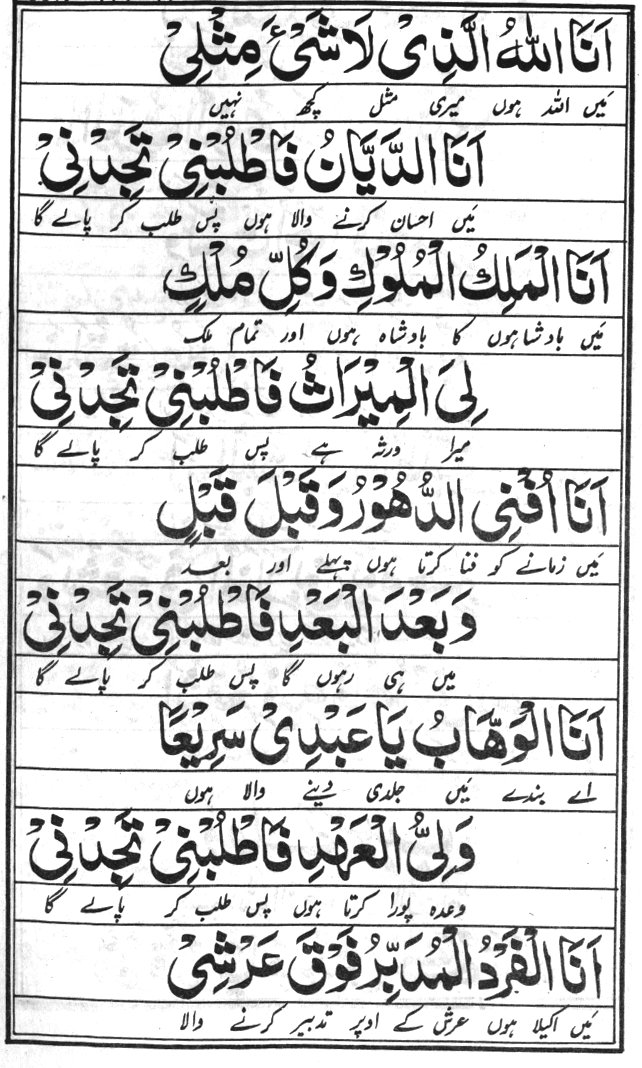 اَنَا اللّٰهُ الَّذِیْ لَا شَیْئَ مِثْلِیْ
مَیں اللہ ہوں میری مثل کچھ نہیں
اَنَا الدَّیَّانُ فَاطْلُبْنِیْ تَجِدْنِیْ
مَیں احسان کرنے والا ہوں پس طلب کر پالے گا
اَنَا الْمَلِكُ الْمُلُوْكِ وَكُلِّ مُلْكٍ
مَیں بادشاہوں کا بادشاہ ہوں اور تمام ملک
لِیَ الْمِیْرَاثُ فَاطْلُبْنِیْ تَجِدْنِیْ
میرا ورثہ ہے پس طلب کر پالے گا
اَنَا اُفْنِی الدُّهُوْرُ وَقَبْلَ قَبْلٍ
مَیں زمانے کو فنا کرتا ہوں پہلے اور بعد
وَبَعْدَ الْبَعْدِ فَاطْلُبْنِیْ تَجِدْنِیْ
میں ہی رہوں گا پس طلب کر پالے گا
اَنَا الْوَهَّابُ یَا عَبْدِیْ سَرِیْعًا
اے بندے مَیں جلدی دینے والا ہوں
وَلِیُّ الْعَهْدِ فَاطْلُبْنِیْ تَجِدْنِیْ
وعدہ پورا کرتا ہوں پس طلب کر پالے گا
اَنَا الْفَرْدُ الْمُدَبِّرُ فَوْقَ عَرْشِیْ
مَیں اکیلا ہوں عرش کے اوپر تدبیر کرنے والا